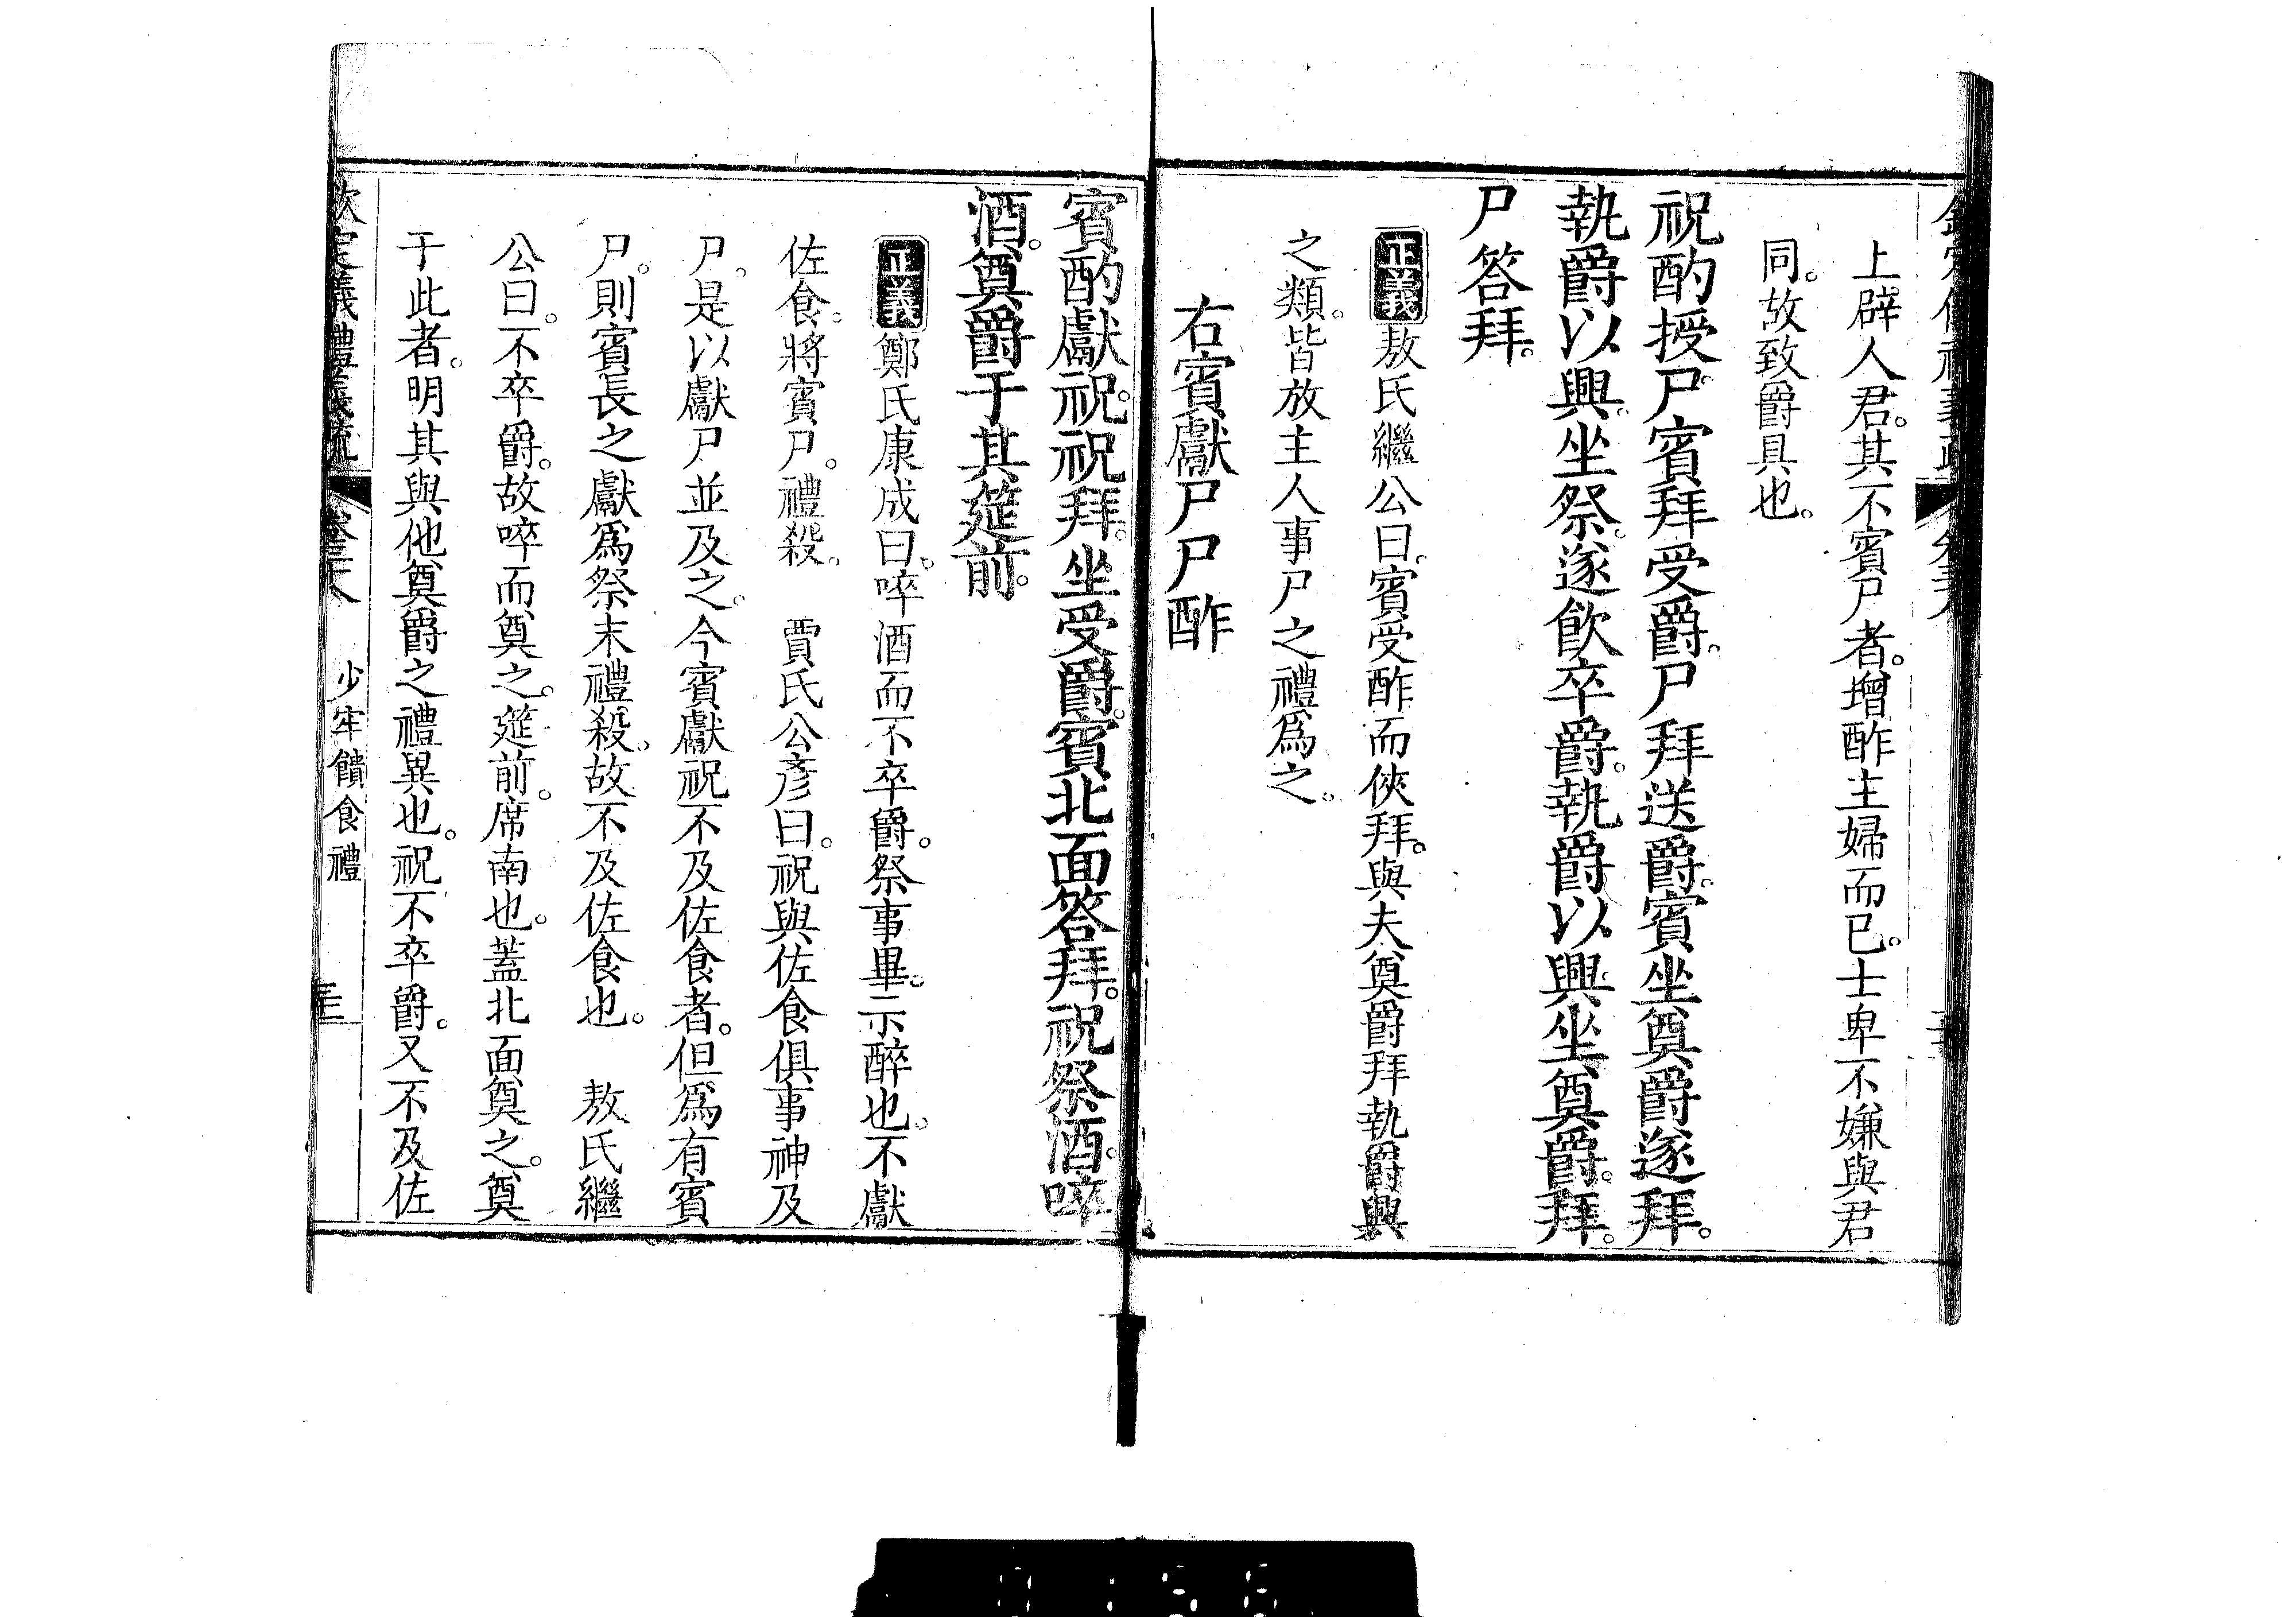 上辟人君。其不賓尸者。增酢主婦而已。士卑不嫌與君
同。故致爵具也。
祝酌授尸。賓拜受爵。尸拜送爵。賓坐奠爵遂拜。
執爵以興。坐祭。遂飲卒爵。執爵以興。坐奠爵。拜。
尸答拜。
正義敖氏繼公曰。賓受酢而俠拜。與夫奠爵拜執爵興
之類。皆放主人事尸之禮爲之。
右賓獻尸尸酢
賓酌獻祝。祝拜。坐受爵。賓北面答拜。祝祭酒。啐
酒。奠爵于其筵前。
正義鄭氏康成曰。啐酒而不卒爵。祭事畢。示醉也。不獻
佐食。將賓尸。禮殺。 賈氏公彥曰。祝與佐食俱事神及
尸。是以獻尸並及之。今賓獻祝不及佐食者。但爲有賓
尸。則賓長之獻爲祭末禮殺。故不及佐食也。 敖氏繼
公曰。不卒爵。故啐而奠之。筵前。席南也。蓋北面奠之。奠
于此者。明其與他奠爵之禮異也。祝不卒爵。又不及佐
欽定義禮義疏 卷三十八 少牢饋食禮